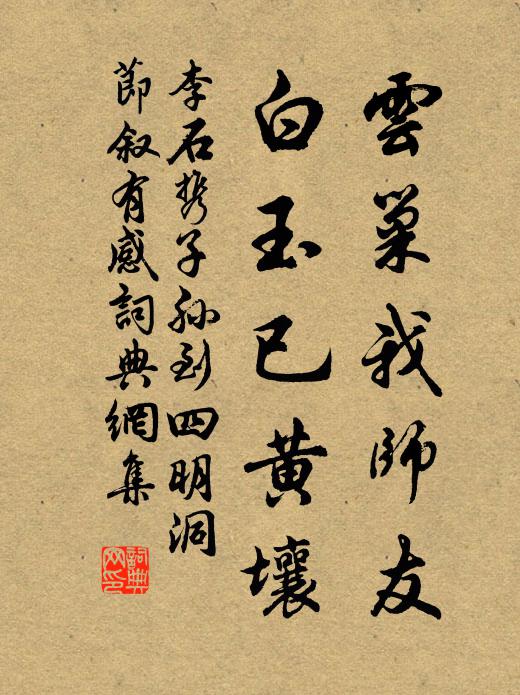 雲巢我師友
白玉已黃壤
李石携子孫到四明洞
節叙有感詞典網集
詞典网印